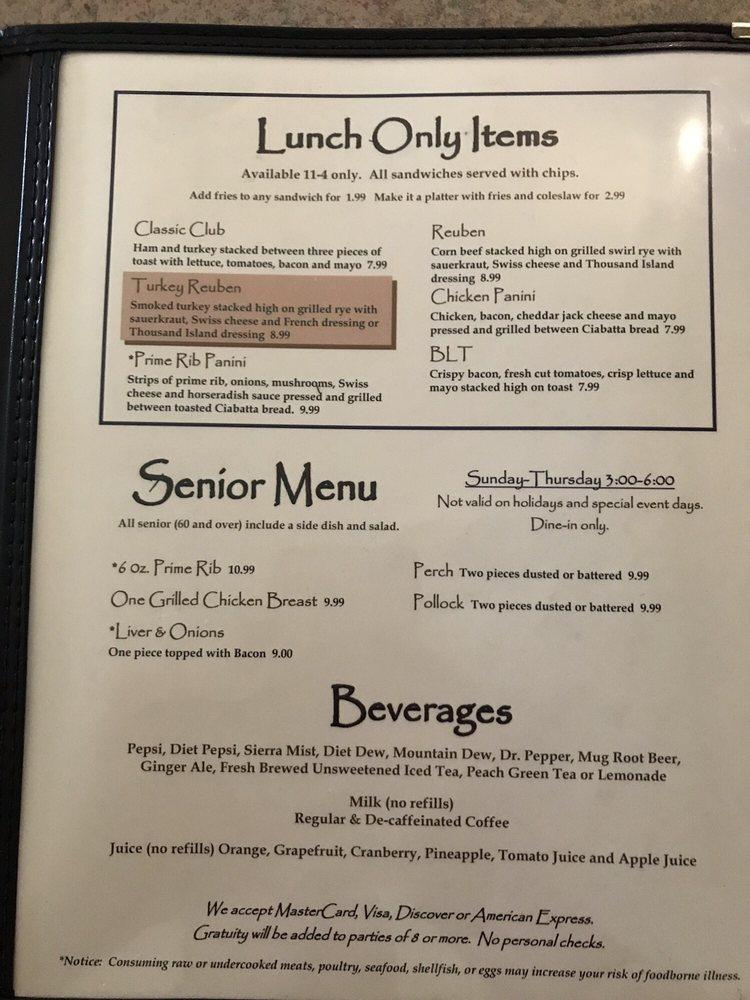 Lunch Only Items
Available 11-4 only. All sandwiches served with chips.
Add fries to any sandwich for 1.99 Make it a platter with fries and coleslaw for 2.99
Classic Club
Ham and turkey stacked between three pieces of
toast with lettuce, tomatoes, bacon and mayo 7.99
Turkey Reuben
Smoked turkey stacked high on grilled rye with
sauerkraut, Swiss cheese and French dressing or
Thousand Island dressing 8.99
*Prime Rib Panini
Strips of prime rib, onions, mushrooms, Swiss
cheese and horseradish sauce pressed and grilled
between toasted Ciabatta bread. 9.99
Reuben
Corn beef stacked high on grilled swirl rye with
sauerkraut, Swiss cheese and Thousand Island
dressing 8.99
Chicken Panini
Chicken, bacon, cheddar jack cheese and mayo
pressed and grilled between Ciabatta bread 7.99
BLT
Crispy bacon, fresh cut tomatoes, crisp lettuce and
mayo stacked high on toast 7.99
Senior Menu
All senior (60 and over) include a side dish and salad.
Sunday-Thursday 3:00-6:00
Not valid on holidays and special event days.
Dine-in only.
*6 oz. Prime Rib 10.99
One Grilled Chicken Breast 9.99
*Liver & Onions
One piece topped with Bacon 9.00
Perch Two pieces dusted or battered 9.99
Pollock Two pieces dusted or battered 9.99
Beverages
Pepsi, Diet Pepsi, Sierra Mist, Diet Dew, Mountain Dew, Dr. Pepper, Mug Root Beer,
Ginger Ale, Fresh Brewed Unsweetened Iced Tea, Peach Green Tea or Lemonade
Milk (no refills)
Regular & De-caffeinated Coffee
Juice (no refills) Orange, Grapefruit, Cranberry, Pineapple, Tomato Juice and Apple Juice
We accept MasterCard, Visa, Discover or American Express.
Gratuity will be added to parties of 8 or more. No personal checks.
*Notice: Consuming raw or undercooked meats, poultry, seafood, shellfish, or eggs may increase your risk of foodborne illness.